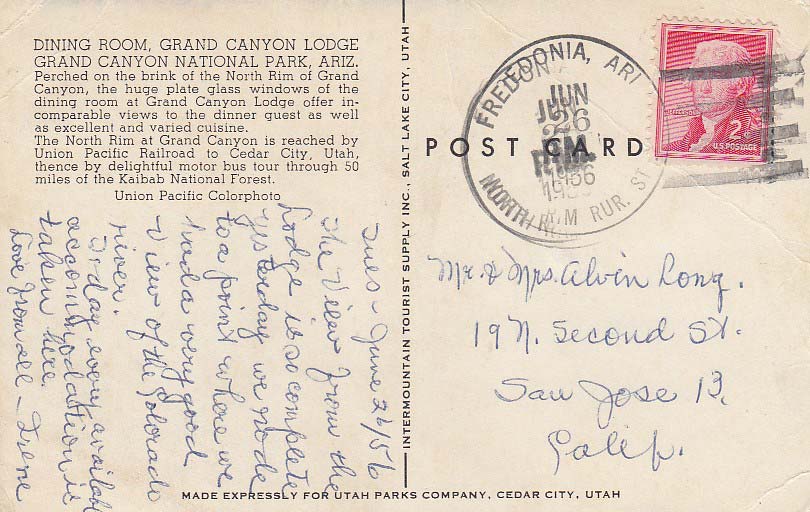 DINING ROOM, GRAND CANYON LODGE
GRAND CANYON NATIONAL PARK, ARIZ.
Perched on the brink of the North Rim of Grand
Canyon, the huge plate glass windows of the
dining room at Grand Canyon Lodge offer in-
comparable views to the dinner guest as well
as excellent and varied cuisine.
The North Rim at Grand Canyon is reached by
Union Pacific Railroad to Cedar City, Utah,
thence by delightful motor bus tour through 50
miles of the Kaibab National Forest.
Union Pacific Colorphoto
Tues - June 26/56
The View from the
Lodge is so complete
yesterday we rode
to a point where we
had a very good
view of the Colorado
river.
room available
accommodation is
taken here.
Love from all - Irene
INTERMOUNTAIN TOURIST SUPPLY INC., SALT LAKE CITY, UTAH
POST CARD
FREDONIA, ARI
JUN
26
P.M.
NORTH RIM RUR. ST
2¢
U.S. POSTAGE
Mr. & Mrs. Alvin Long.
19 N. Second St.
San Jose 13,
Calif.
MADE EXPRESSLY FOR UTAH PARKS COMPANY, CEDAR CITY, UTAH